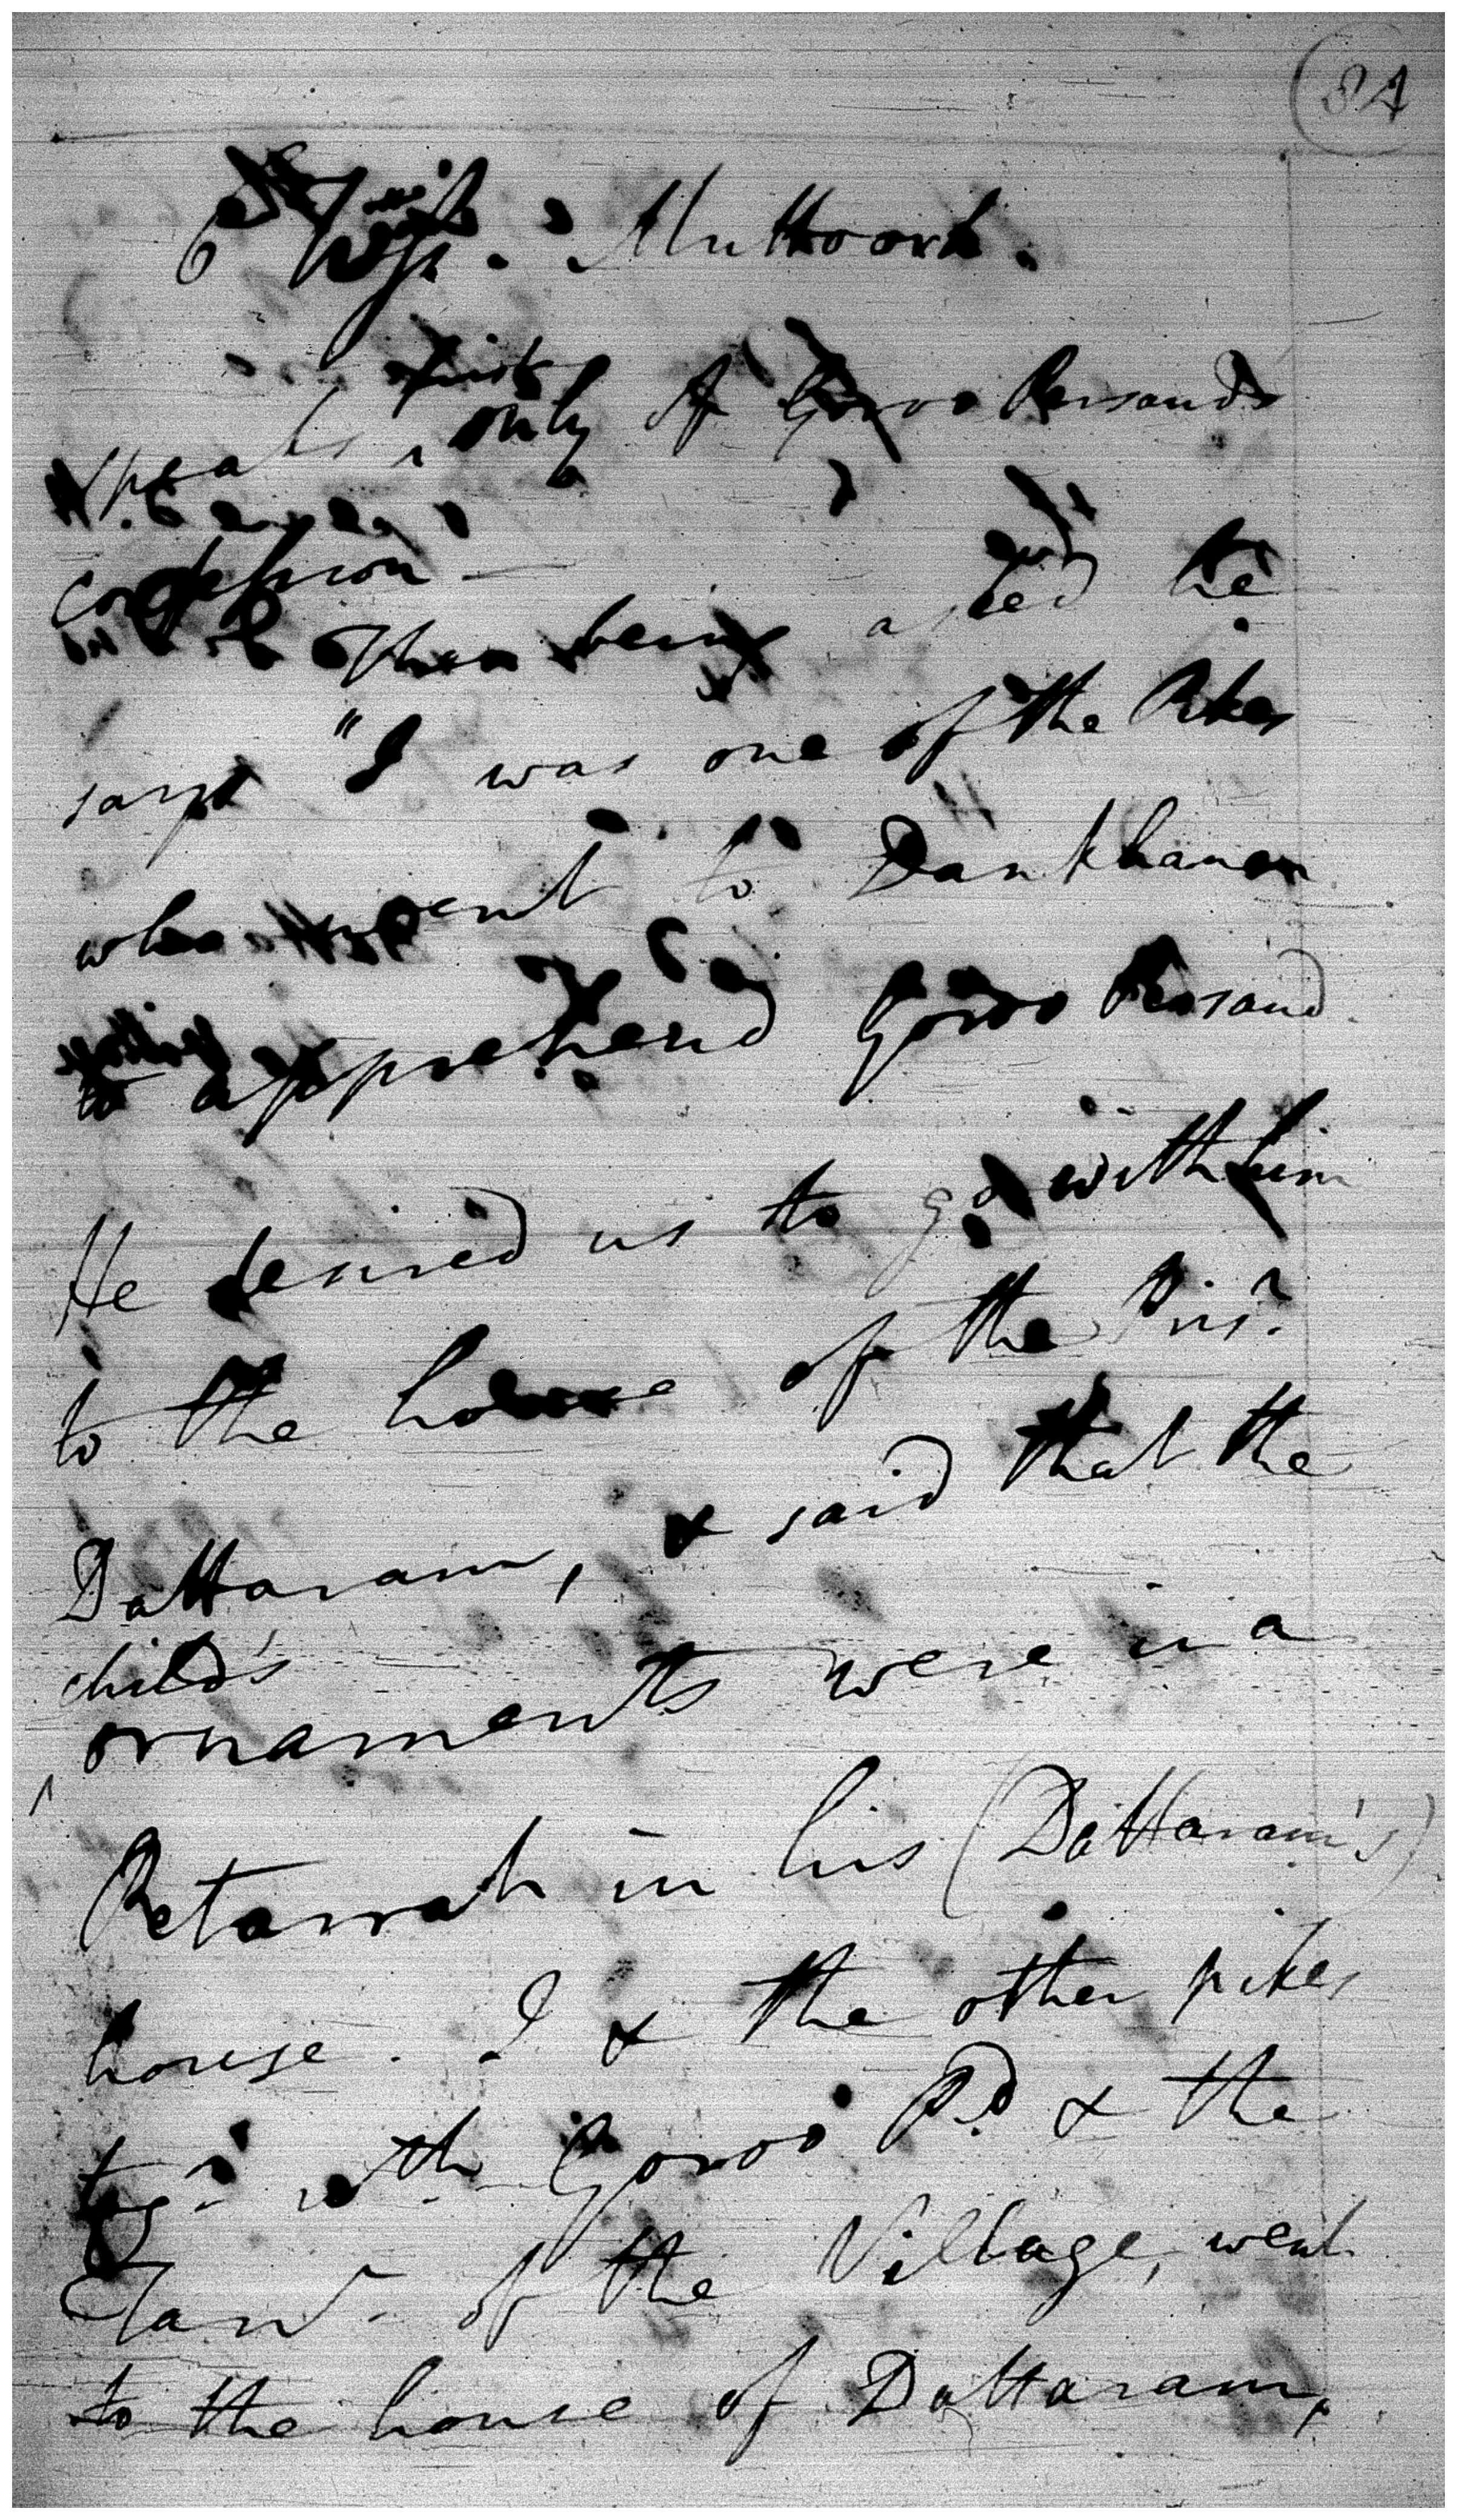 84
6 Wit. Muttoorh.
speaks first only of Goroo Persaud's
confession —
Then being asked he
says "I was one of the Pikes
who went to Dankhaner
to apprehend Goroo Persaud
He desired us to go with him
to the house of the Pris.r
Dattaram, & said that the
child's
ornaments were in a
Petarrah in his (Dattaram's)
house. I & the other pikes
tog.r with Goroo P.d & the
of the Village, went
to the house of Dattaram,